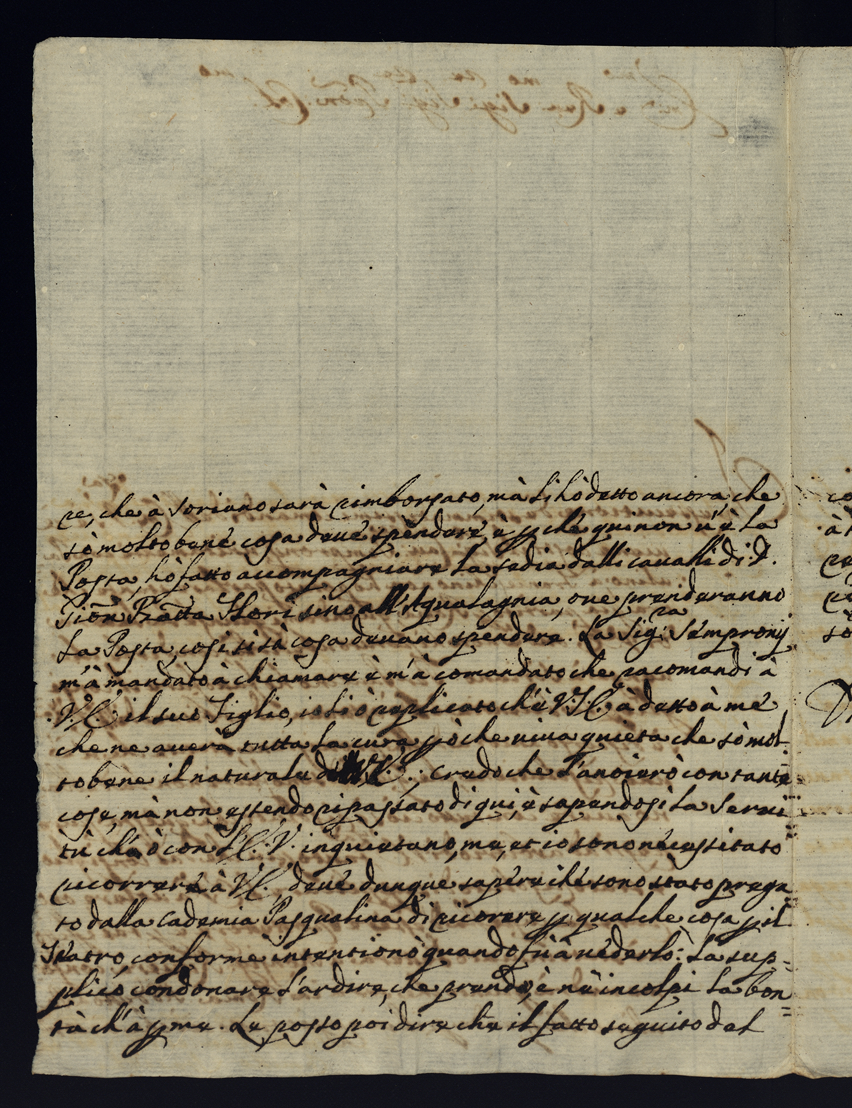 re, che à Soriano sarà rimborsato, mà li hò detto ancora, che
sò molto bene cosa deve spendere, è p che qui non u'è la
Posta, hò fatto accompagniare la sedia dalli cavalli di S.
Piatta Flori sino all'Aqualagnia, oue prenderanno
La Posta, cosi si sà cosa deuano spendere. La Sig.ra Sempronij
m'à mandato à chiamare è m'à comandato che racomandi à
V.E. il suo Figlio, io li ò replicato ch'è V.E. à detto à me
che ne auerà tutta la cura p ò che uiua quieta che sò mol
to bene il naturale di V.E.; credo che l'anoierò con tante
cose, mà non essendo ripassato di qui, è sapendosi la Serui
tù ch'ò con l'E.V. inquietano, me, et io sono necessitato
ricorrere à V.E. deue dunque sapere che sono stato prega
to dalla Cademia Pasqualina di ricorere p qualche cosa p il
Teatro, conforme intentionò quando fù à uederlo: La sup=
plico condonare l'ardire, che prendo, è nè incolpi la bon
tà ch'à p me. Le posso poi dire che il fatto seguito dal